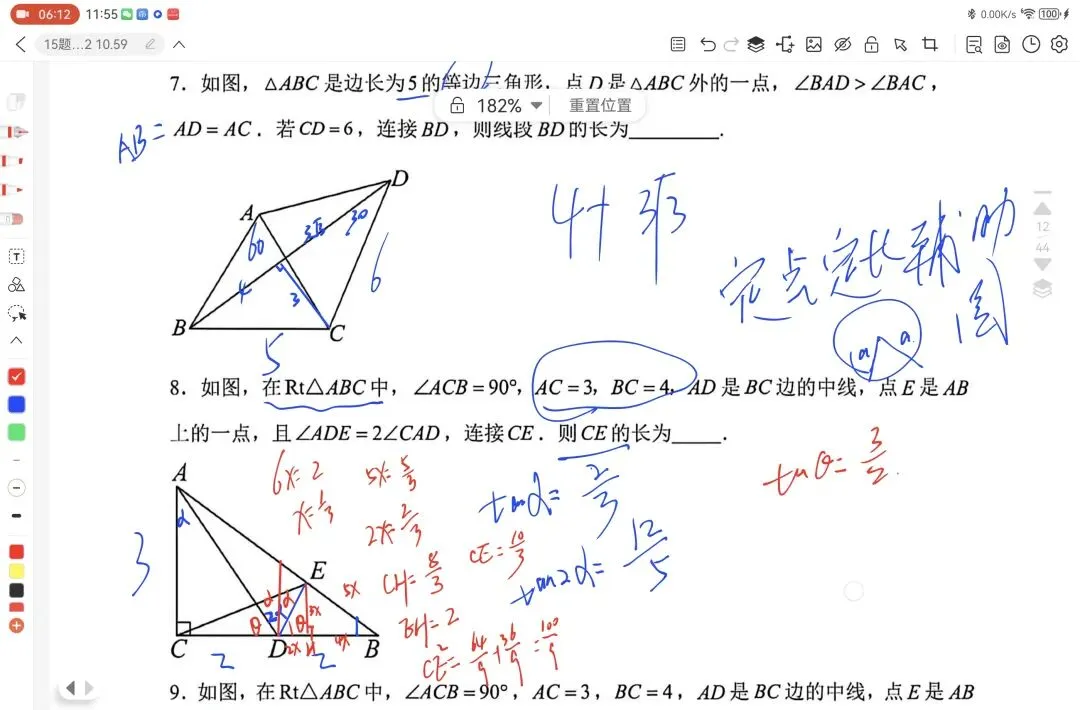 06:12 11:55 0.00K/s 100
15题...2 10.59
7. 如图，△ABC 是边长为5的等边三角形，点 D 是△ABC 外的一点，∠BAD > ∠BAC，
182% 重置位置
AB= AD = AC．若 CD = 6，连接 BD，则线段 BD 的长为________.
A
D
B
C
60
30
4
3
6
5
4+3√3
定点定长辅助
圆
a a
12
44
8. 如图，在 Rt△ABC 中，∠ACB = 90°，AC = 3，BC = 4，AD 是 BC 边的中线，点 E 是 AB
上的一点，且∠ADE = 2∠CAD，连接 CE．则 CE 的长为_____.
A
α
3
E
C
D
B
2
2
θ
α α
2α
θ
3x
5x
2x
H
4x
6x=2
x=1/3
5x=5/3
2x=2/3
CH=8/3
BH=2
CE=10/3
CE²=64/9+36/9=100/9
tanα=2/3
tan2α=12/5
tanθ=3/2
9. 如图，在 Rt△ABC 中，∠ACB = 90°，AC = 3，BC = 4，AD 是 BC 边的中线，点 E 是 AB